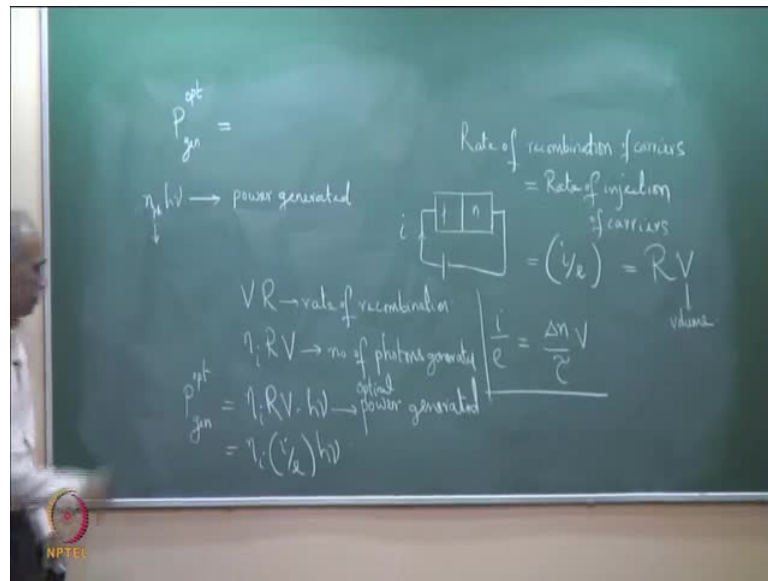 P_gen^opt =
η_ph hν → power generated
Rate of recombination of carriers
= Rate of injection
of carriers
i
p n
= (i/e) = RV
volume
VR → rate of recombination
η_i RV → no of photons generated
P_gen^opt = η_i RV. hν → optical power generated
= η_i (i/e) hν
i/e = Δn/τ V
NPTEL